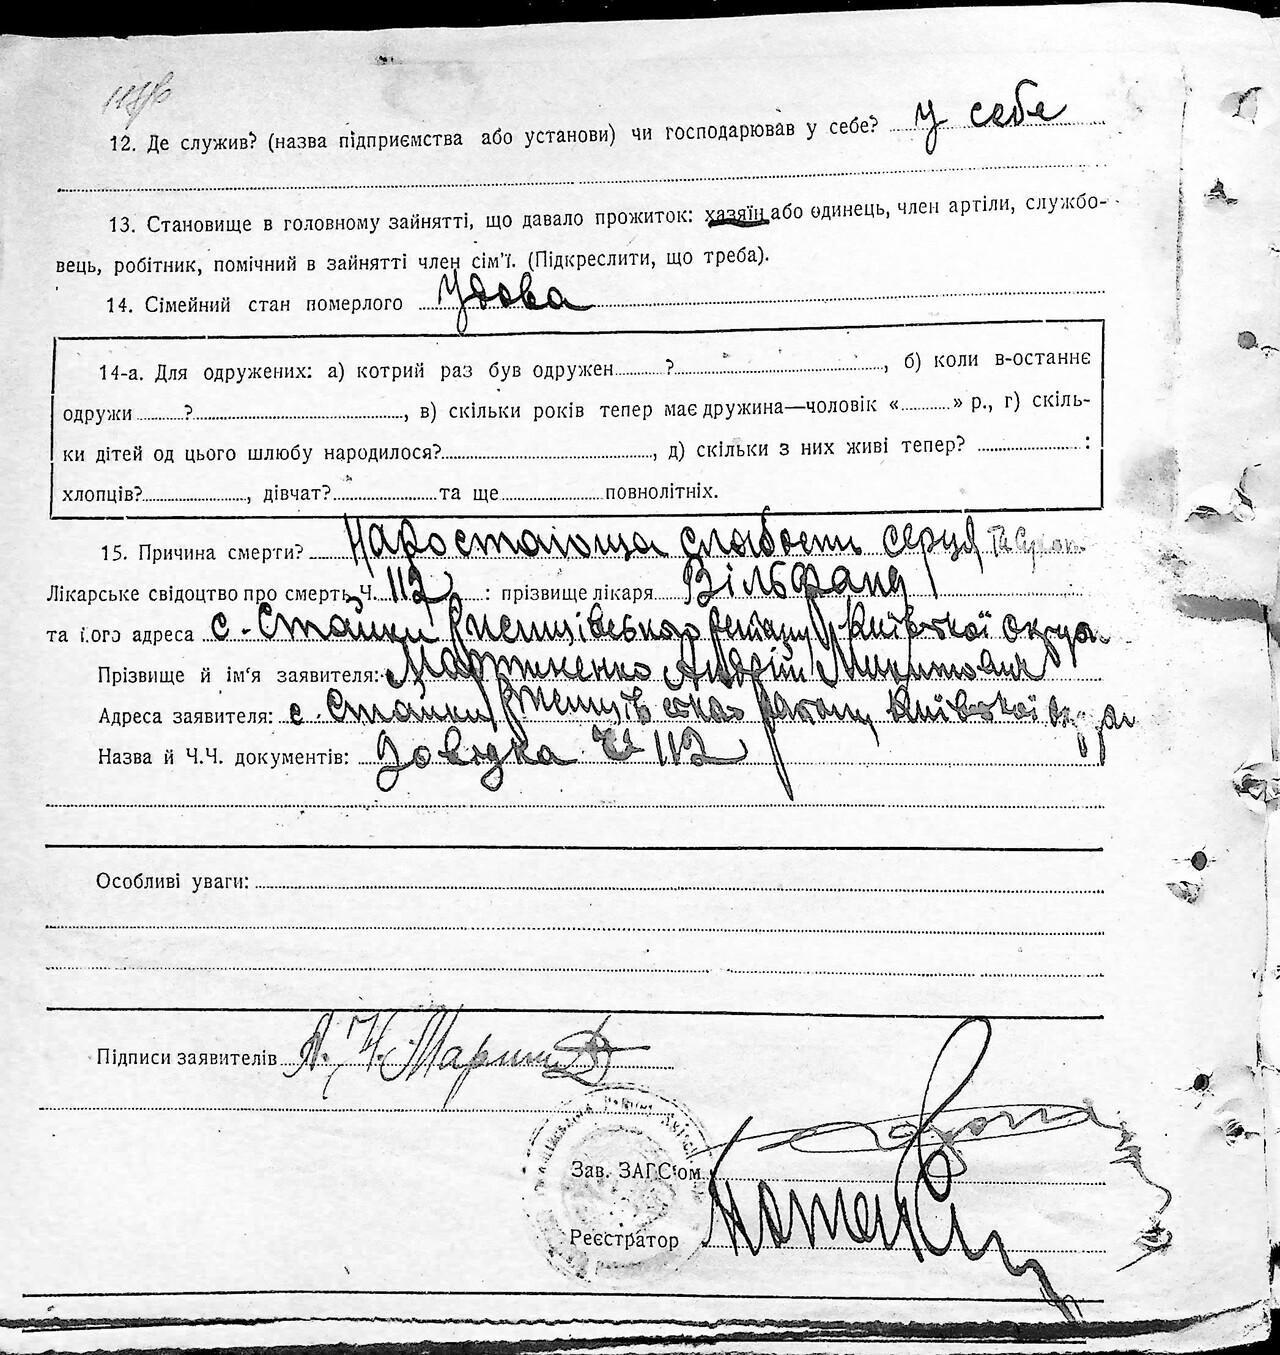 12. Де служив? (назва підприємства або установи) чи господарював у себе? у себе
13. Становище в головному зайнятті, що давало прожиток: хазяїн або одинець, член артіли, службо-
вець, робітник, помічний в зайнятті член сім'ї. (Підкреслити, що треба).
14. Сімейний стан померлого Удова
14-а. Для одружених: а) котрий раз був одружен ? , б) коли в-останнє
одружи ? , в) скільки років тепер має дружина—чоловік « » р., г) скіль-
ки дітей од цього шлюбу народилося? , д) скільки з них живі тепер? :
хлопців? , дівчат? та ще повнолітніх.
15. Причина смерти? Наростающа слабость серця
Лікарське свідоцтво про смерть Ч. 112 : прізвище лікаря Вільфанд
та його адреса с. Стайки Ржищівського району Київської округи
Прізвище й ім'я заявителя: Мартиненко Андрій Микитович
Адреса заявителя: с. Стайки Ржищівського району Київської округи
Назва й Ч.Ч. документів: Довідка Ч 112
Особливі уваги:
Підписи заявителів А. Н. Март
Зав. ЗАГС'ом
Реєстратор